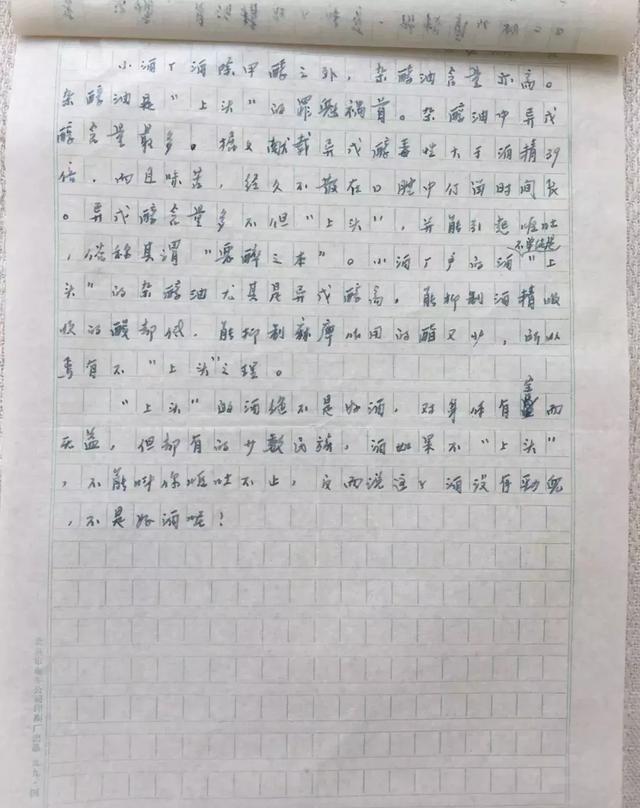 小酒厂酒除甲醇之外，杂醇油含量亦高。
杂醇油是“上头”的罪魁祸首。杂醇油中异戊
醇含量最多。据文献载异戊醇毒性大于酒精39
倍，而且味苦，经久不散在口腔中停留时间长
。异戊醇含量多不但“上头”，并能引起呕吐
，俗称其谓“恶醉之本”。小酒厂产的酒“上
头”的杂醇油尤其是异戊醇高，能抑制酒精吸
收的酸却低，能抑制麻痹作用的酯又少，所以
有不“上头”之理。
“上头”的酒绝不是好酒，对身体有害而
无益，但却有的少数民族，酒如果不“上头”
，不能叫你呕吐不止，反而说这个酒没有劲呢
，不是好酒呢！